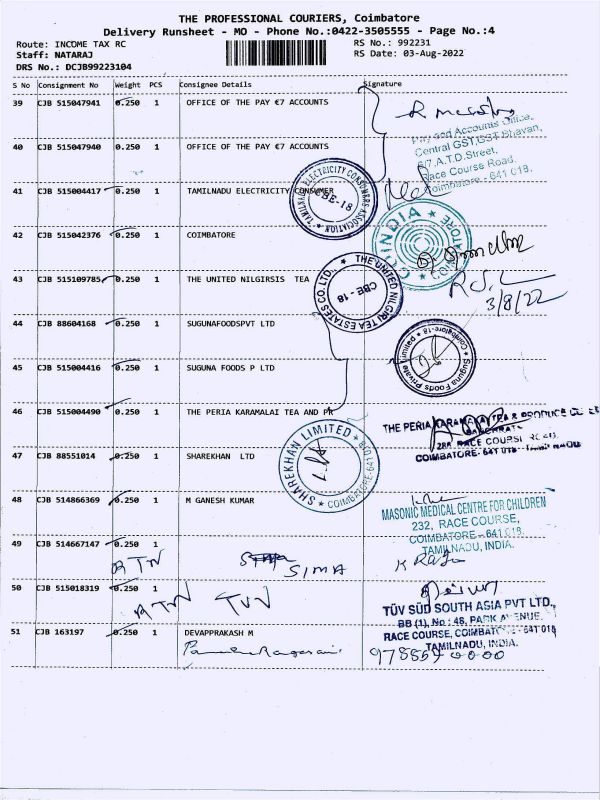 THE PROFESSIONAL COURIERS, Coimbatore
Delivery Runsheet - MO - Phone No.:0422-3505555 - Page No.:4
Route: INCOME TAX RC
RS No.: 992231
Staff: NATARAJ
RS Date: 03-Aug-2022
DRS No.: DCJB99223104
S No Consignment No Weight PCS Consignee Details Signature
39 CJB 515047941 0.250 1 OFFICE OF THE PAY €7 ACCOUNTS
Pay and Accounts Office,
Central GST, GST Bhavan,
6/7, A.T.D. Street,
Race Course Road,
Coimbatore - 641 018.
40 CJB 515047940 0.250 1 OFFICE OF THE PAY €7 ACCOUNTS
41 CJB 515004417 0.250 1 TAMILNADU ELECTRICITY CONSUMER
TAMILNADU ELECTRICITY CONSUMERS ASSOCIATION
CBE-18
42 CJB 515042376 0.250 1 COIMBATORE
INDIA
43 CJB 515109785 0.250 1 THE UNITED NILGIRSIS TEA
THE UNITED NILGIRI TEA ESTATES CO. LTD.
CBE - 18
3/8/22
44 CJB 88604168 0.250 1 SUGUNAFOODSPVT LTD
Suguna Foods Private Limited
Coimbatore-18
45 CJB 515004416 0.250 1 SUGUNA FOODS P LTD
46 CJB 515004490 0.250 1 THE PERIA KARAMALAI TEA AND PR
THE PERIA KARAMALAI TEA & PRODUCE
RACE COURSE
COIMBATORE- 641 018
47 CJB 88551014 0.250 1 SHAREKHAN LTD
SHAREKHAN LIMITED
COIMBATORE-641 018
48 CJB 514866369 0.250 1 M GANESH KUMAR
MASONIC MEDICAL CENTRE FOR CHILDREN
232, RACE COURSE,
COIMBATORE - 641 018.
TAMILNADU, INDIA.
49 CJB 514667147 0.250 1
RTN SIMA
50 CJB 515018319 0.250 1
RTN TUV
TÜV SÜD SOUTH ASIA PVT LTD.,
BB (1), No : 46, PARK AVENUE,
RACE COURSE, COIMBATORE - 641 018
TAMILNADU, INDIA.
51 CJB 163197 0.250 1 DEVAPPRAKASH M